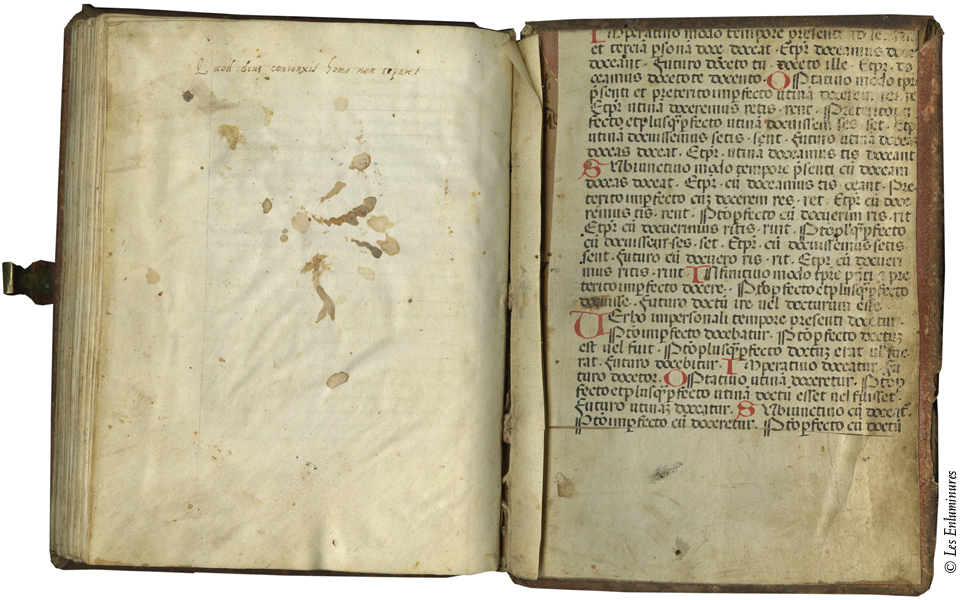 Quod deus coniunxit homo non separet
Imperativo modo tempore presenti
et tercia psona doce doceat · Etpr̄ doceamus
doceant · Futuro doceto tu · doceto ille · Etpr̄ · do
ceamus docetote docento · Optativo modo
p̄senti et preterito imp̄fecto utinā docerem
Etpr̄ utinā doceremus retis · rent · Preterito
fecto et plusq̄p̄fecto utinā docuissem ses · set · Etpr̄
utinā docuissemus setis · sent · Futuro utinā doceā
doceas doceat · Etpr̄ · utinā doceamus tis doceant
Subiunctivo modo tempore p̄senti cū doceam
doceas doceat · Etpr̄ · cū doceamus tis · ceant · Pre
terito imp̄fecto cuȝ docerem res · ret · Etpr̄ cū doce
remus tis · rent · Pto p̄fecto cū docuerim ris · rit
Etpr̄ cū docuerimus ritis · rint · Pto plusq̄p̄fecto
cū docuissem · ses · set · Etpr̄ · cū docuissemus setis
sent · Futuro cū docuero ris · rit · Etpr̄ cū docueri
mus ritis · rint · Infinitivo modo tp̄re p̄nti et pre
terito imp̄fecto docere · Pto p̄fecto et plusq̄p̄fecto
docuisse · Futuro doctū ire vel docturum esse
Verbo impersonali tempore presenti docetur
Pto imp̄fecto docebatur · Pto p̄fecto doctuȝ
est vel fuit · Pto plusq̄p̄fecto doctuȝ erat vl' fue
rat · Futuro docebitur · Imperativo doceatur · Fu
turo docetor · Optativo utinā doceretur · Pto p̄
fecto et plusq̄p̄fecto utinā doctū esset vel fuisset
Futuro utinaȝ doceatur · Subiunctivo cū doceat̄
Pto imp̄fecto cū doceretur · Pto p̄fecto cū doctū
© Les Enluminures